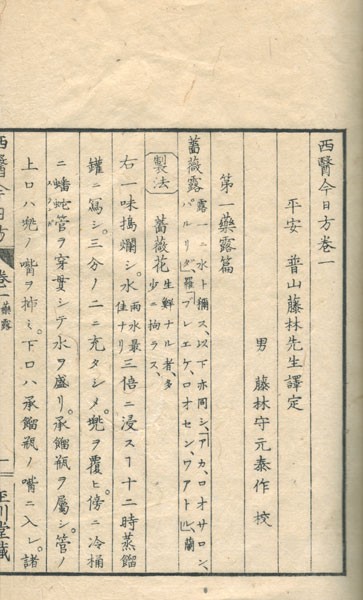 西醫今日方卷一
平安 普山藤林先生譯定
男 藤林守元泰作 校
第一藥露篇
薔薇露 露一ニ水ト稱ス、以下亦同シ、アカ、ロオサロン、
パルリダ、羅 ブレエケ、ロオセン、ワアトル、蘭
製法 薔薇花 生鮮ナル者、多
少ニ拘ラス、
右一味搗爛シ。水 雨水最
佳ナリ 三倍ニ浸スヿ十二時蒸餾
罐ニ冩シ。三分ノ二ニ充タシメ。兜ヲ覆ヒ傍ニ冷桶
ニ蟠蛇管ヲ穿貫シテ水ヲ盛リ。承餾瓶ヲ屬シ。管ノ
上口ハ兜ノ嘴ヲ挿ミ。下口ハ承餾瓶ノ嘴ニ入レ諸
西醫今日方 卷一 藥露 一